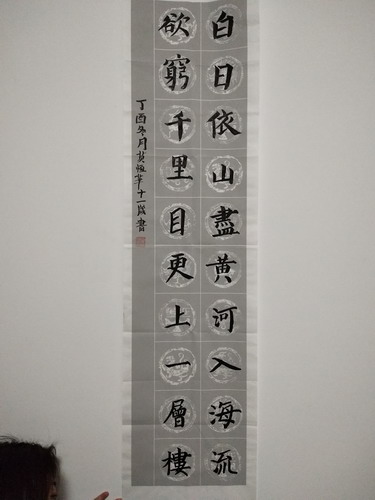 白日依山盡黃河入海流
欲窮千里目更上一層樓
丁酉冬月黃恆葦十一歲書